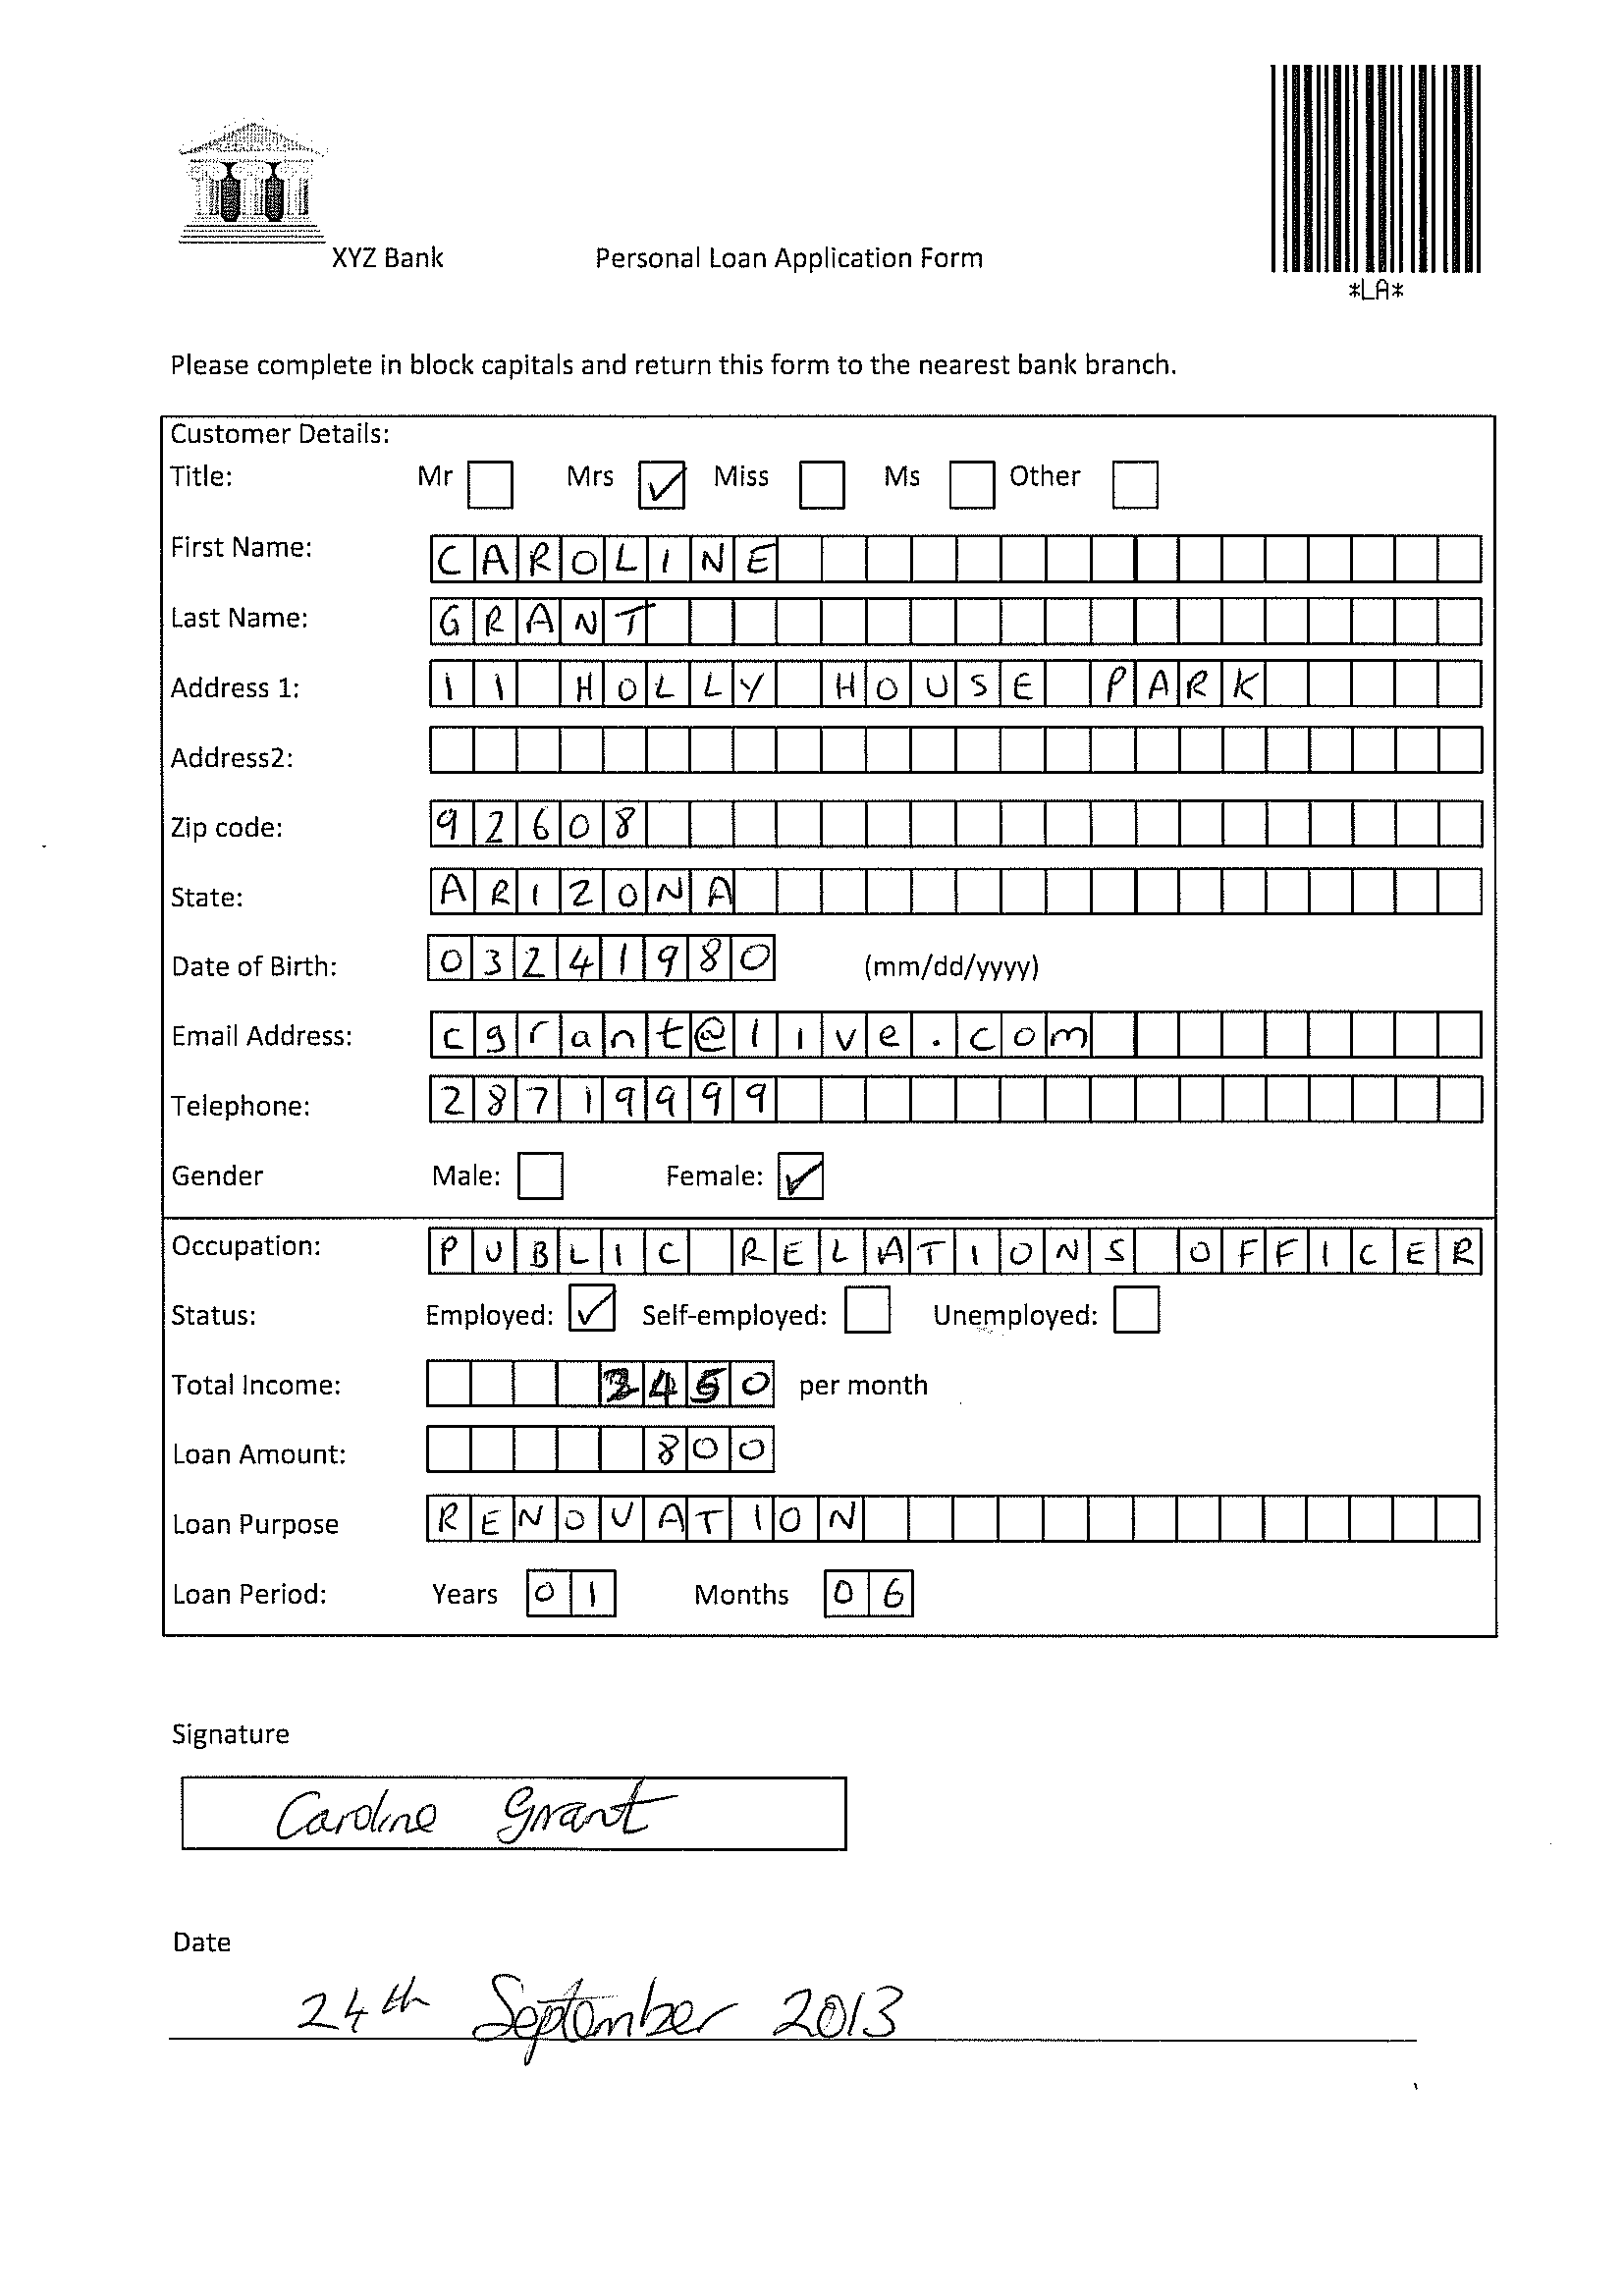 XYZ Bank Personal Loan Application Form
*LA*
Please complete in block capitals and return this form to the nearest bank branch.
Customer Details:
Title: Mr Mrs ✓ Miss Ms Other
First Name: CAROLINE
Last Name: GRANT
Address 1: 11 HOLLY HOUSE PARK
Address2:
Zip code: 92608
State: ARIZONA
Date of Birth: 03241980 (mm/dd/yyyy)
Email Address: cgrant@live.com
Telephone: 28719999
Gender Male: Female: ✓
Occupation: PUBLIC RELATIONS OFFICER
Status: Employed: ✓ Self-employed: Unemployed:
Total Income: per month
Loan Amount: 800
Loan Purpose RENOVATION
Loan Period: Years 01 Months 06
Signature
Caroline Grant
Date
24th September 2013